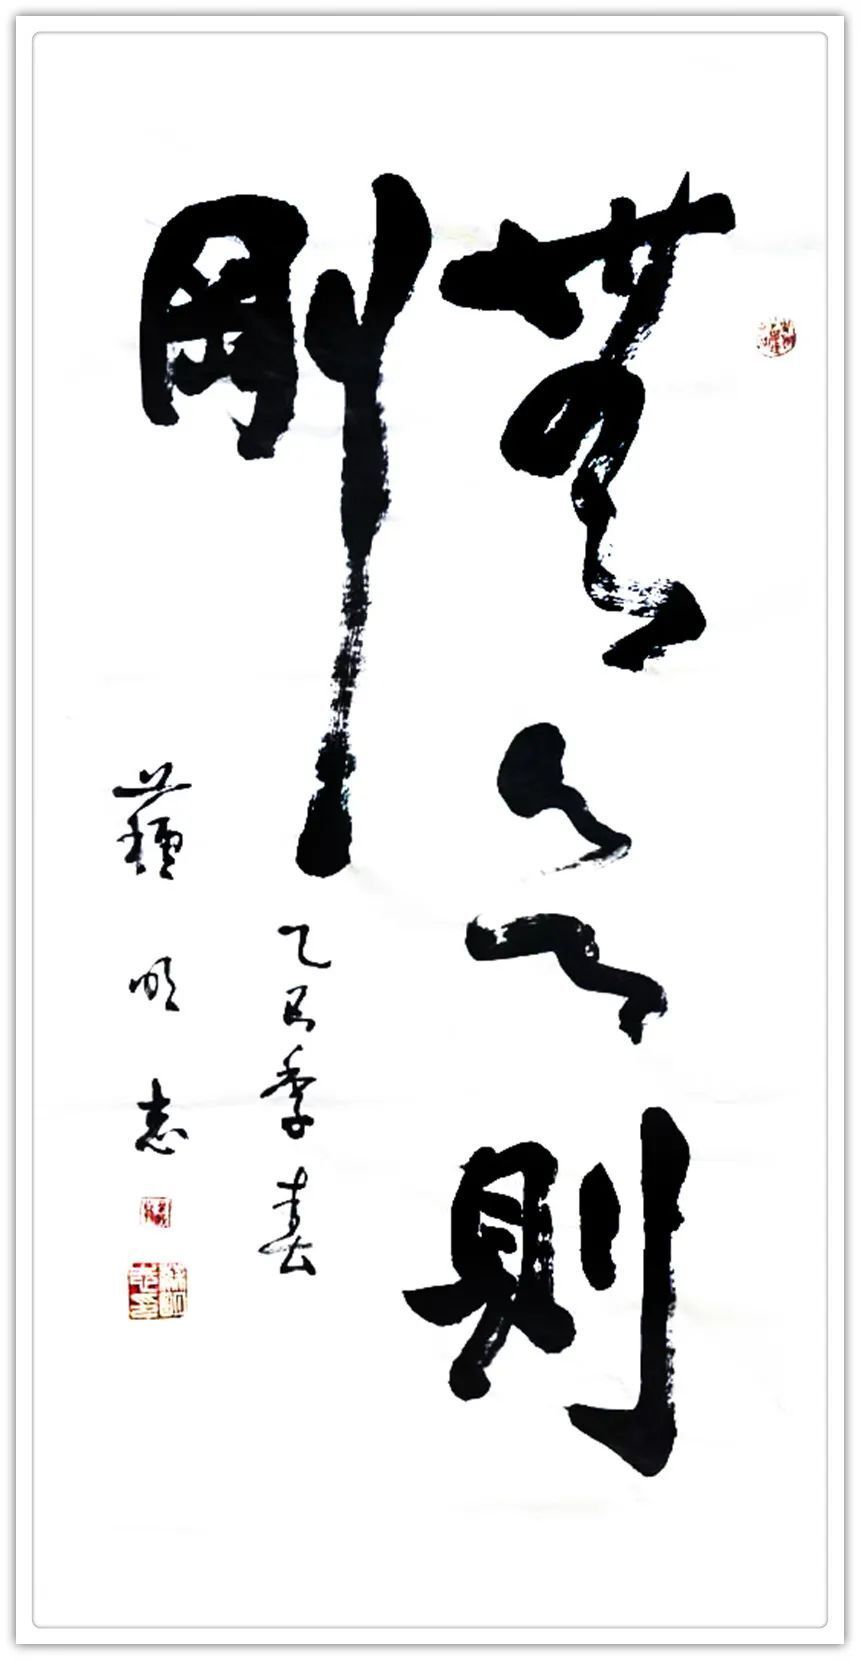 無欲則
剛
乙巳季春
蘇明志